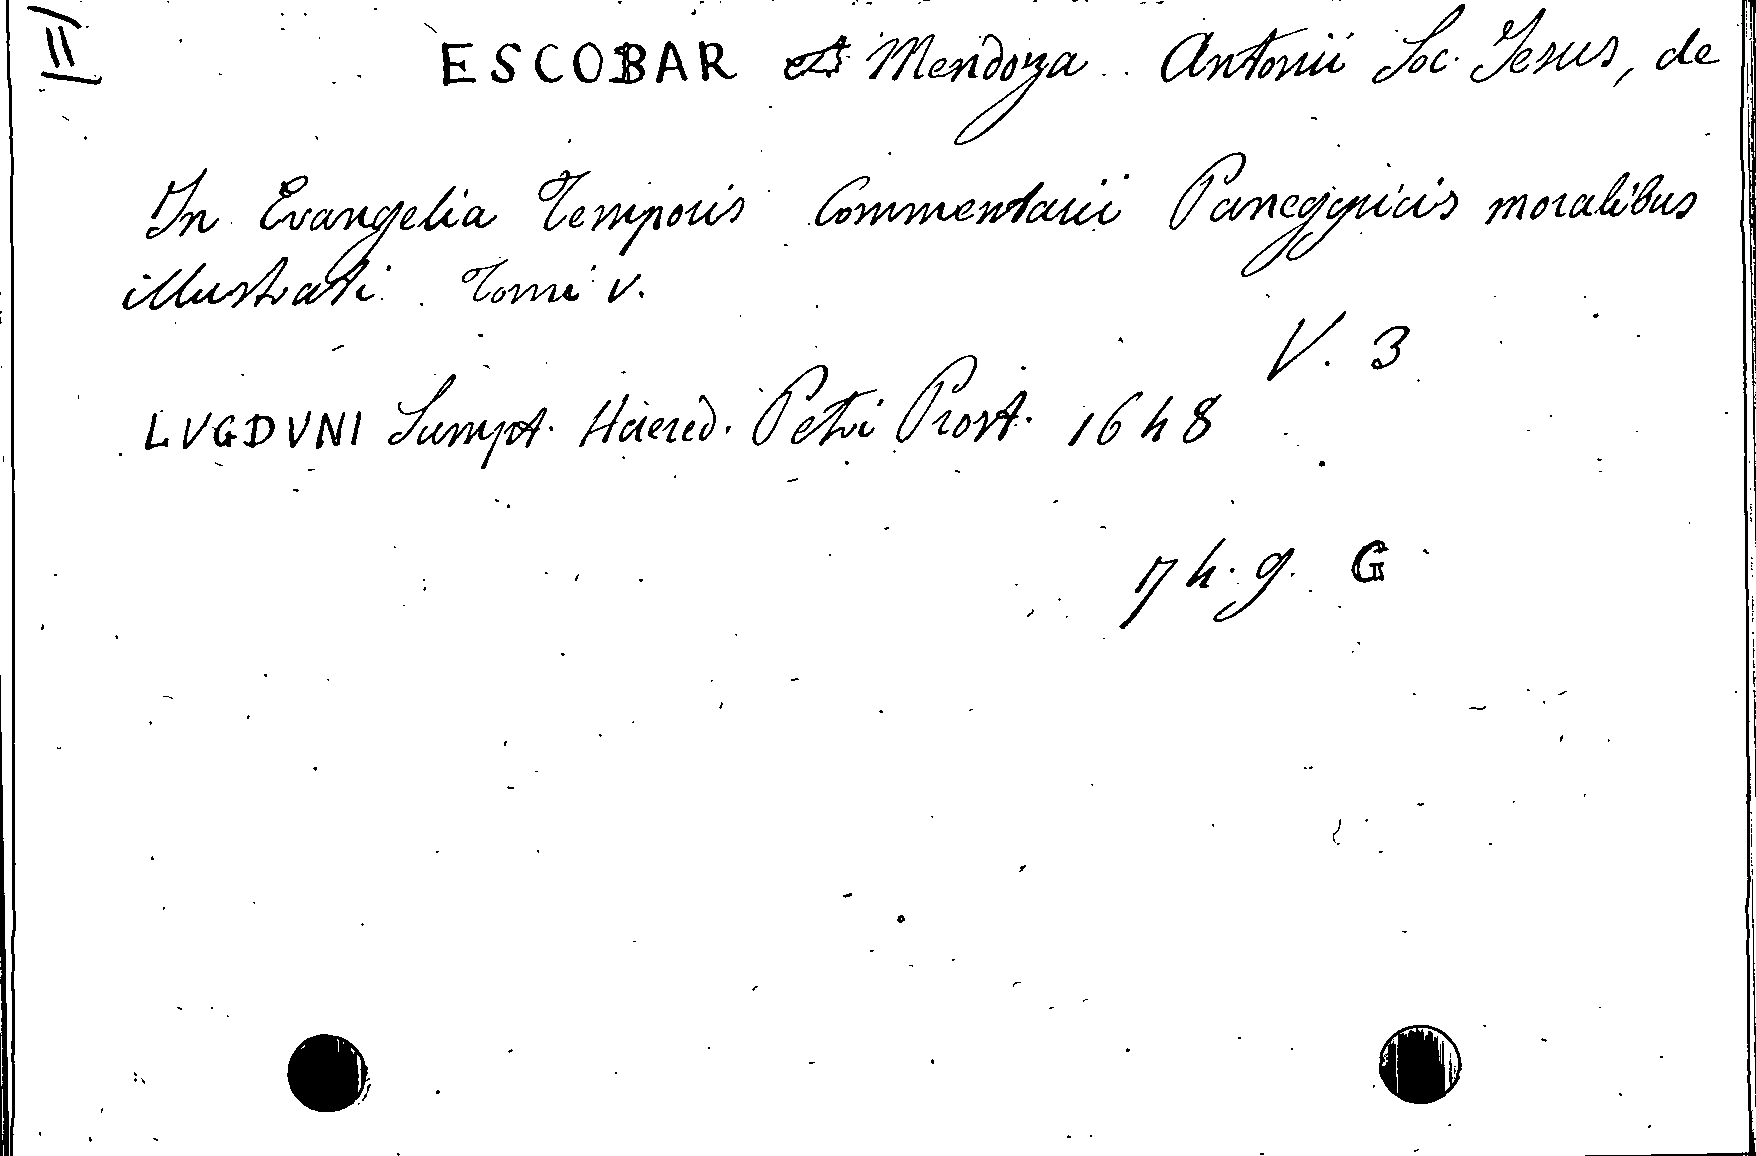 II
ESCOBAR et Mendoza Antonii Soc. Jesus, de
In Evangelia Temporis Commentarii Panegyricis moralibus
illustrati. Tomi V.
V. 3
LVGDVNI Sumpt. Haered. Petri Prost. 1648
74. g. G